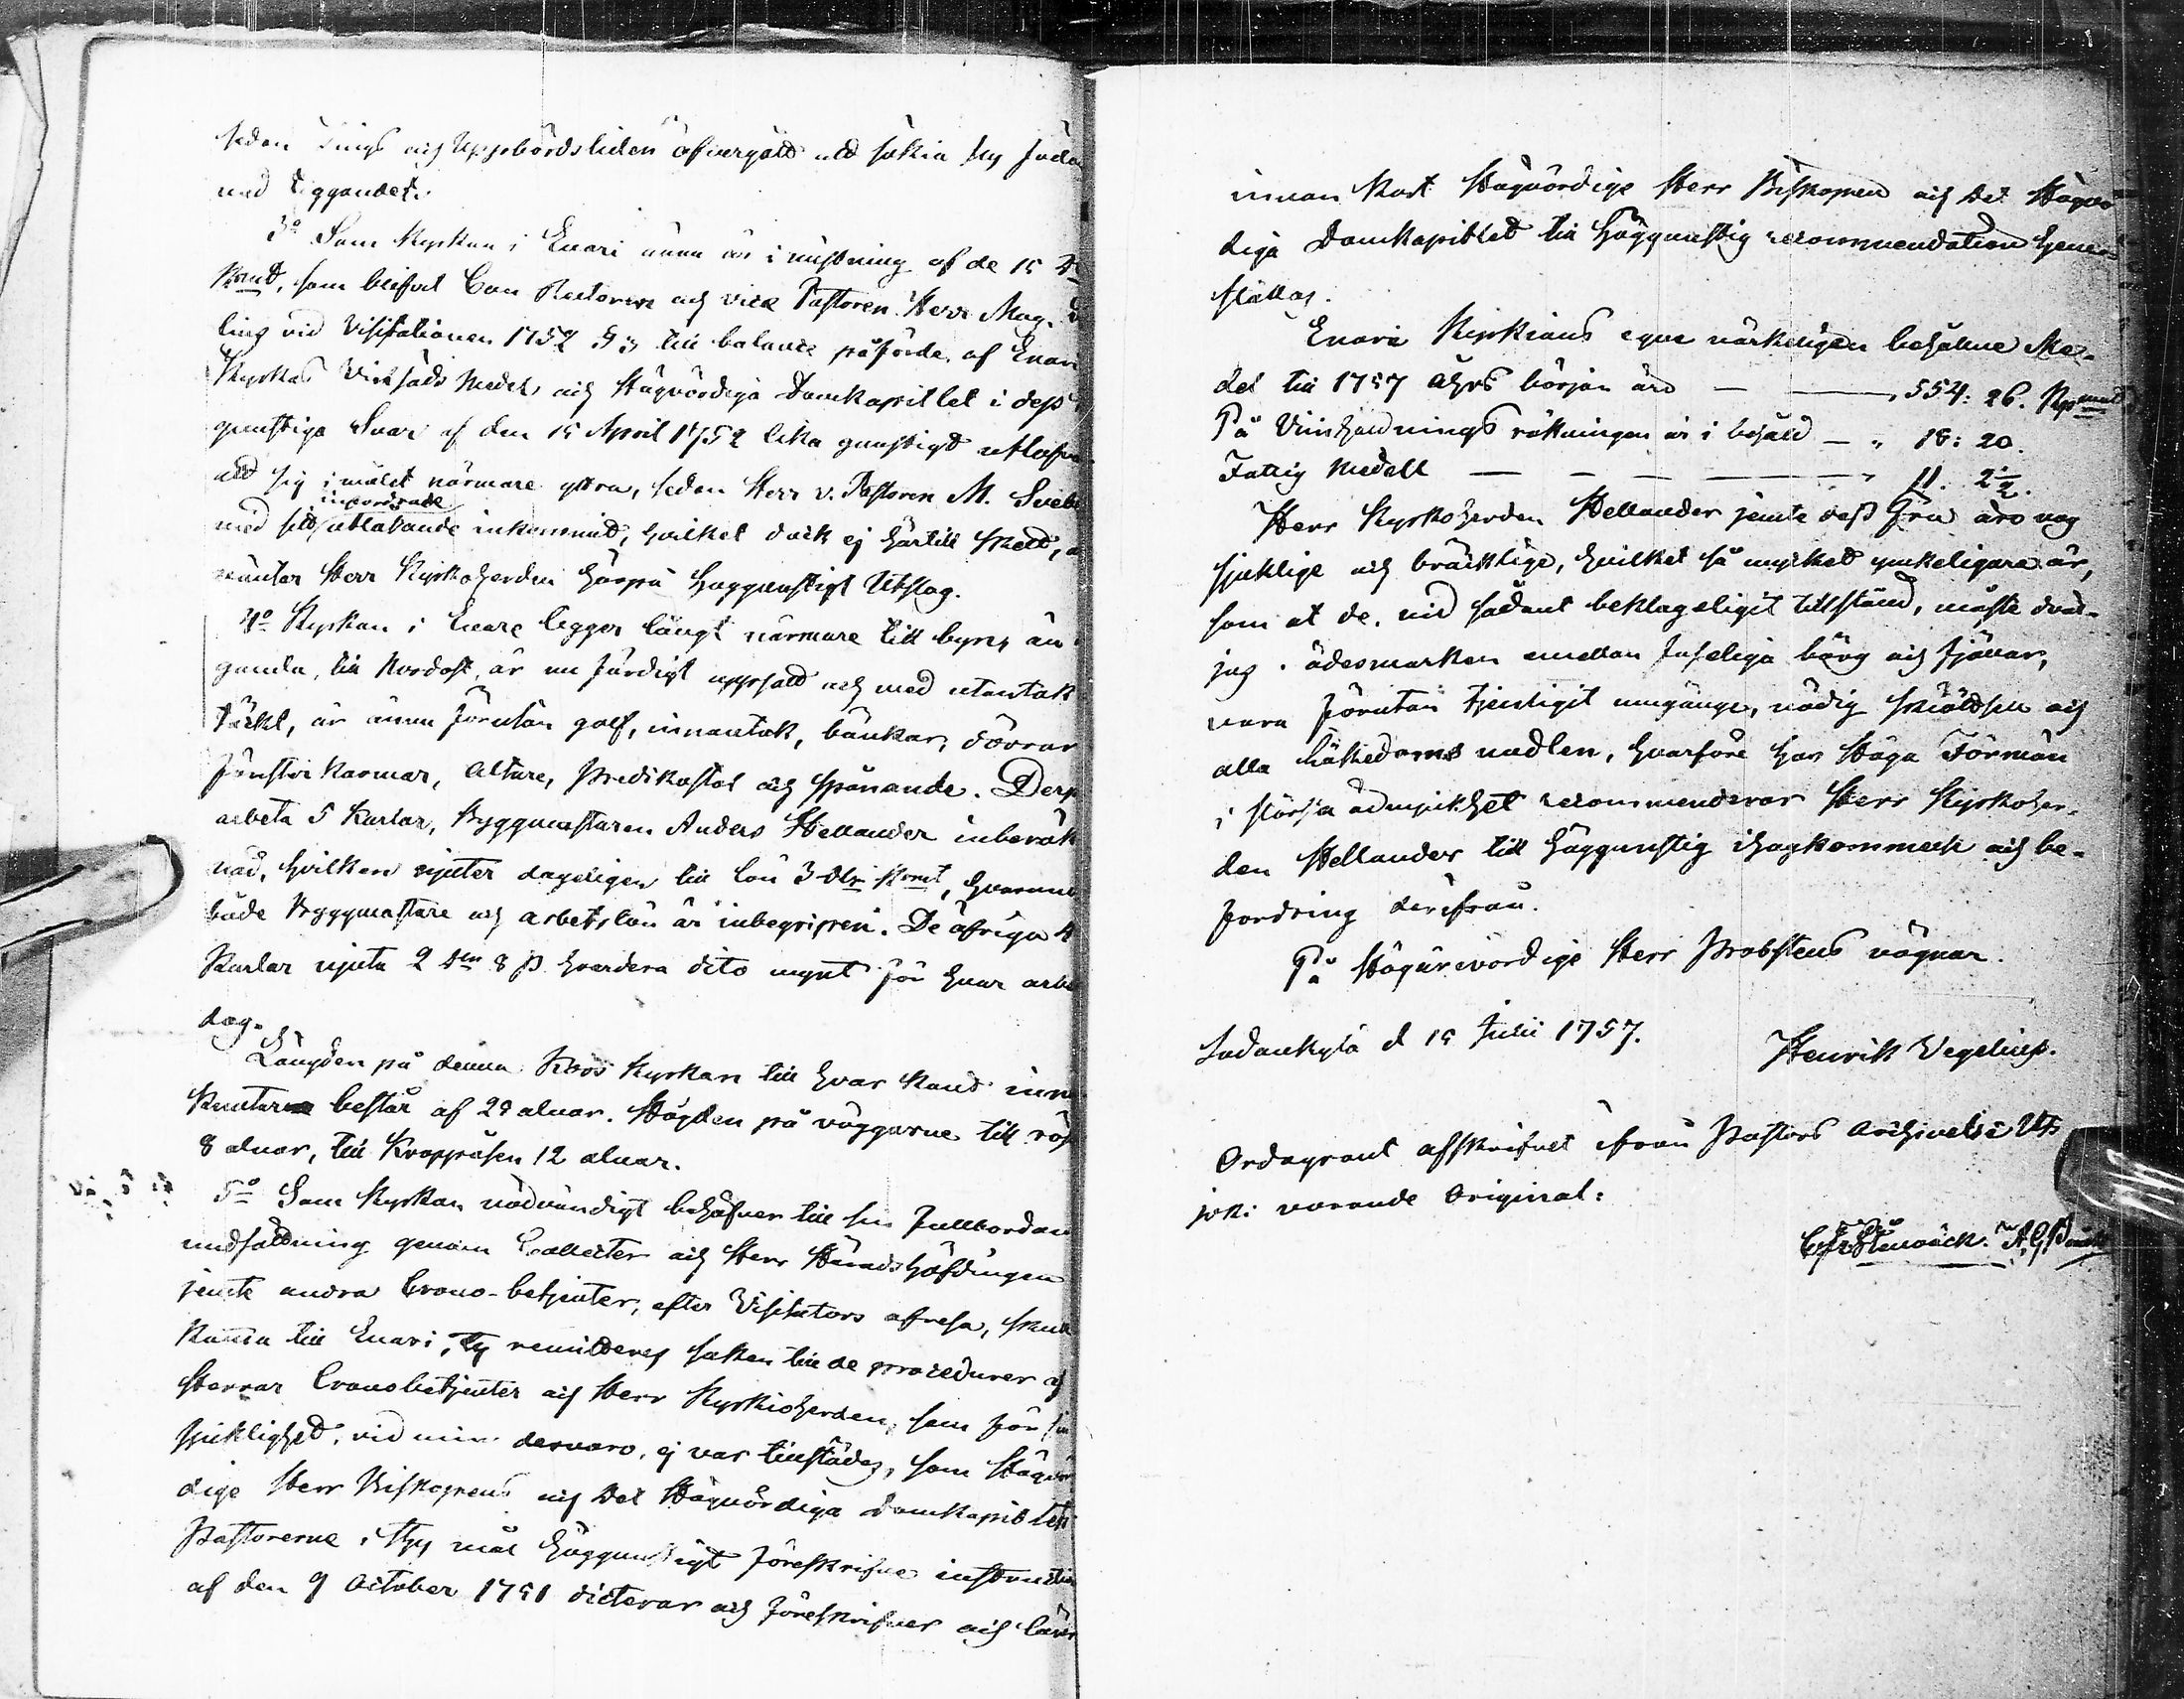 sedan tings och Uppbördstiden öfvergått att sökia sig föda
med tiggandet.
3o Som Kyrkan i Enari ännu är i mistning af de 15 D
Kmt, som blifvit Con Rectoren och vice Pastoren Herr Mag.
lius vid Visitationen 1752 § 3 till balance påförde af Enari
Kyrkas Vinsäds Medel, och Högvördiga Domkapitlet i dess
gunstiga Svar af den 15 April 1752 lika gunstigt utlofva
att sig i målet närmare yttra, sedan Herr v. Pastoren M. Sveb
infordrade
med sitt utlåtande inkommit, hvilket dock ej härtill skett,
väntar Herr Kyrkoherden härpå höggunstigt Utslag.
4o Kyrkan i Enare legger långt närmare till byen än
gamla, till Nordost, är nu färdigt uppsatt och med utantak
täckt, är ännu förutan golf, innantak, bänkar, dörrar
fönster karmar, altare, predikostol och spånande. Derp
arbeta 5 Karlar, byggmästaren Anders Hellander inberäk
nad, hvilken njuter dageligen till lön 3 dlr Kmt, hvarunder
både byggmästare och arbetslön är inbegripen. De öfriga 4
Karlar njuta 2 dlr 8 p hvardera dito mynt för hvar arbe
dag.
Längden på denna Korss Kyrkan till hvar kant inn
Knutarne består af 28 alnar. Högden på väggarne till rös
8 alnar, till Kroppåsen 12 alnar.
5o Som Kyrkan nödvändigt behöfver till sin fullbordan
undsättning genom Collecter och Herr Häradshöfdingen
jemte andra Crono-betjenter, efter Visitators afresa, skulle
komma till Enari, ty remitteras saken till de procedurer af
Herrar Cronobetjenter och Herr Kyrkioherden, som för sin
sjuklighet, vid min dervaro, ej var tillstädes, som Högvör
dige Herr Biskopens och Det Högvördiga Domkapitlets
Pastorerne i sly mål höggunstigt föreskrifne instruction
af den 9 October 1751 dicterar och föreskrifver och lärer
innan kort Högvördige Herr Biskopen och Det Högvör
diga Domkapitlet till höggunstig recommendation hem-
ställas.
Enari Kyrkians egne värkeligen behållne Me-
del till 1757 åhrs början äro — — 554: 26. Kopmnt
På Vinshållnings räkningen är i behåld — " 18: 20.
Fattig Medell — — — — " 11. 2½.
Herr Kyrkoherden Hellander jemte dess Fru äro nog
sjuklige och bräcklige, hvilket så mycket ynkeligare är,
som at de, vid sådant beklageligit tillstånd, måste dväl-
jas i ödesmarken emellan faseliga bärg och fjällar,
vara förutan tjenligit umgänge, nödig skiötsel och
alla läkedoms medlen, hvarföre hos Höga Förmän
i störsa ödmjukhet recommenderar Herr Kyrkoher-
den Hellander till höggunstig ihogkommelse och be-
fordring därifrån.
På Högärevördige Herr Probstens vägnar.
Sodankylä d 15 Julii 1757. Henrik Wegelius.
Ordagrant afskrifvet ifrån Pastors Archivets i Uts
joki varande Original: